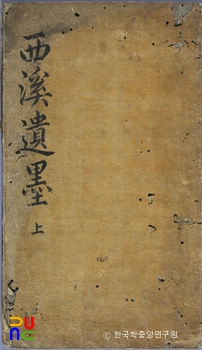 西溪遺墨
上
© 한국학중앙연구원